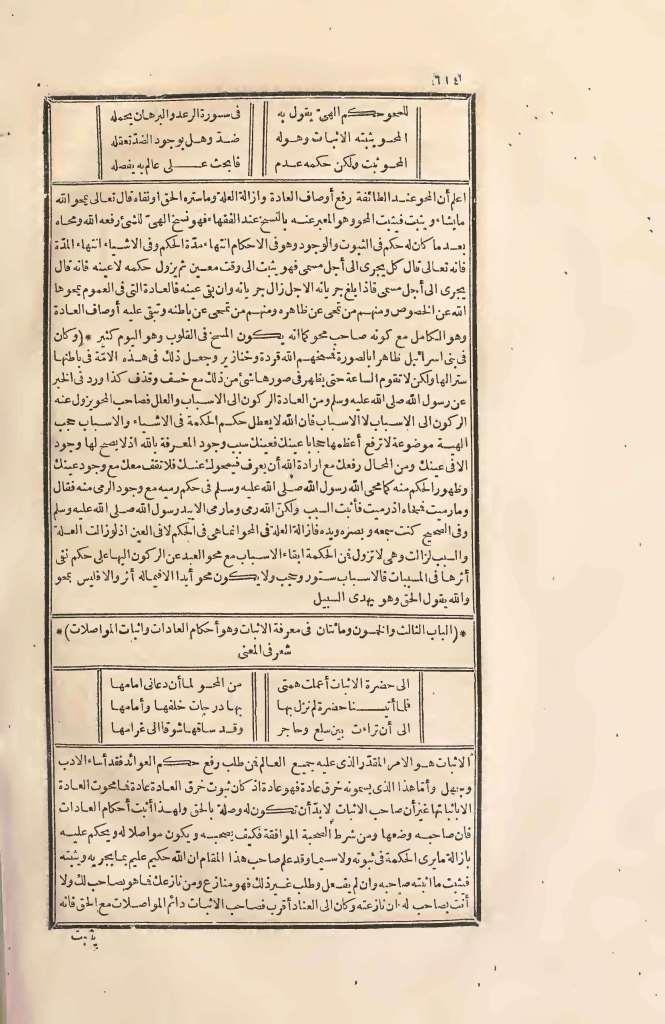 ٦١٤
للمحو حكم الهى يقول به فى سورة الرعد والبرهان يحمله
المحو يثبته الاثبات وهوله ضد وهل بوجود الضد تعقله
المحو ثبت ولكن حكمه عدم فابحث على عالم به يفصله
اعلم أن المحو عند الطائفة رفع أوصاف العادة وازالة العلة وماستره الحق اونفاه قال تعالى يمحو الله
مايشاء ويثبت فيثبت المحو وهو المعبر عنه بالنسخ عند الفقهاء فهو نسخ الهى للشئ رفعه الله ومحاه
بعد ما كان له حكم فى الثبوت والوجود وهو فى الاحكام انتهاء مدة الحكم وفى الاشياء انتهاء المدة
فانه تعالى قال كل يجرى الى أجل مسمى فهو يثبت الى وقت معين ثم يزول حكمه لاعينه فانه قال
يجرى الى أجل مسمى فاذا بلغ جريانه الاجل زال جريانه وان بقى عينه فالعادة التى فى العموم يمحوها
الله عن الخصوص ومنهم من تمحى عن ظاهره ومنهم من تمحى عن باطنه وتبقى عليه أوصاف العادة
وهو الكامل مع كونه صاحب محو كما انه يكون المسخ فى القلوب وهو اليوم كثير * (وكان
فى بنى اسرائيل ظاهرا بالصورة فمسخهم الله قردة وخنازير وجعل ذلك فى هذه الامة فى باطنها
سترالها ولكن لا تقوم الساعة حتى يظهر فى صورهاشئ من ذلك مع خسف وقذف كذا ورد فى الخبر
عن رسول الله صلى الله عليه وسلم ومن العادة الركون الى الاسباب والعلل فصاحب المحو يزول عنه
الركون الى الاسباب لا الاسباب فان الله لا يعطل حكم الحكمة فى الاشياء والاسباب حجب
الهية موضوعة لا ترفع أعظمها حجابا عينك فعينك سبب وجود المعرفة بالله اذ لا يصح لها وجود
الا فى عينك ومن المحال رفعك مع ارادة الله أن يعرف فيمحوك عنك فلا تقف معك مع وجود عينك
وظهور الحكم منه كما محى الله رسول الله صلى الله عليه وسلم فى حكم رميه مع وجود الرمى منه فقال
ومارميت فمحاه اذ رميت فأثبت السبب ولكن الله رمى ومارمى الا بيد رسول الله صلى الله عليه وسلم
وفى الصحيح كنت سمعه وبصره ويده فازالة العلة فى المحو انما هى فى الحكم لا فى العين اذ لوزالت العلة
والسبب لزالت وهى لا تزول فمن الحكمة ابقاء الاسباب مع محو العبد عن الركون اليها على حكم نفى
أثرها فى المسببات فالاسباب ستور وحجب ولا يكون محو أبدا الا فيما له أثر والا فليس بمحو
والله يقول الحق وهو يهدى السبيل
*(الباب الثالث والخمسون ومائتان فى معرفة الاثبات وهو أحكام العادات واثبات المواصلات)*
شعر فى المعنى
الى حضرة الاثبات أعملت همتى من المحو لما أن دعانى امامها
فلما أتينا حضرة لم نزل بها بها درجات خلفها وأمامها
الى أن تراءت بين سلع وحاجر وقد ساقها شوقا الى غرامها
الاثبات هو الامر المقدر الذى عليه جميع العالم فمن طلب رفع حكم العوائد فقد أساء الادب
وجهل وأما هذا الذى يسمونه خرق عادة فهو عادة اذ كان ثبوت خرق العادة عادة فما محوت العادة
الا باثباتها غير أن صاحب الاثبات لابد أن تكون له وصلة بالحق ولهذا أثبت أحكام العادات
فان صاحبه وضعها ومن شرط الصحبة الموافقة فكيف يصحبه ويكون مواصلا له ويحكم عليه
بازالة مايرى الحكمة فى ثبوته ولاسيما وقد علم صاحب هذا المقام ان الله حكيم عليم بما يجريه ويثبته
فيثبت ما اثبته صاحبه وان لم يفعل وطلب غير ذلك فهو منازع ومن نازعك فما هو بصاحب لك ولا
أنت بصاحب له ان نازعته وكان الى العناد أقرب فصاحب الاثبات دائم المواصلات مع الحق فانه
يثبت